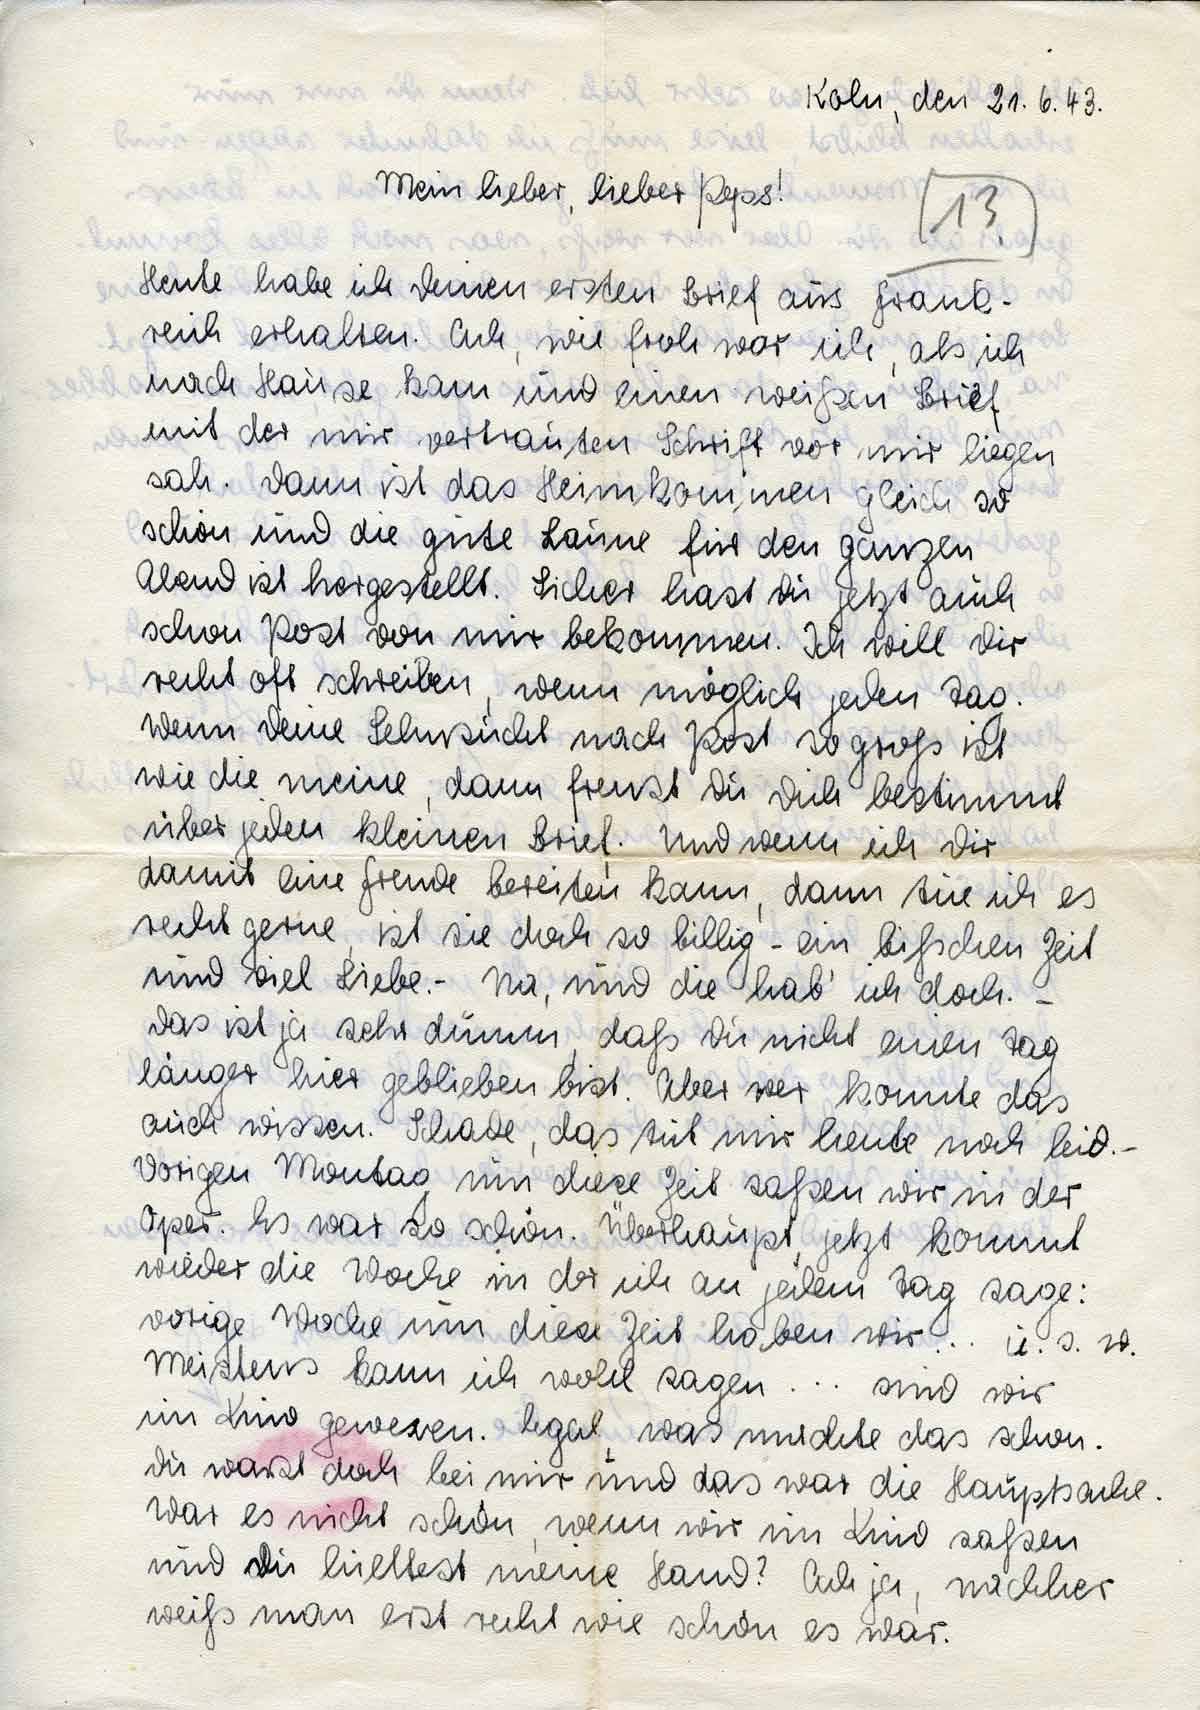 Köln, den 21.6.43.
Mein lieber, lieber Peps!
13.
Heute habe ich Deinen ersten Brief aus Frank-
reich erhalten. Ach, wie froh war ich, als ich
nach Hause kam und einen weißen Brief
mit der mir vertrauten Schrift vor mir liegen
sah. Dann ist das Heimkommen gleich so
schön und die gute Laune für den ganzen
Abend ist hergestellt. Sicher hast Du jetzt auch
schon Post von mir bekommen. Ich will Dir
recht oft schreiben, wenn möglich jeden Tag.
Wenn Deine Sehnsucht nach Post so groß ist
wie die meine, dann freust Du Dich bestimmt
über jeden kleinen Brief. Und wenn ich Dir
damit eine Freude bereiten kann, dann tue ich es
recht gerne, ist sie doch so billig - ein bißchen Zeit
und viel Liebe. - Na, und die hab' ich doch. -
Das ist ja sehr dumm, daß Du nicht einen Tag
länger hier geblieben bist. Aber wer konnte das
auch wissen. Schade, das tut mir heute noch leid. -
Vorigen Montag um diese Zeit saßen wir in der
Oper. Es war so schön. Überhaupt, jetzt kommt
wieder die Woche in der ich an jedem Tag sage:
vorige Woche um diese Zeit haben wir... u. s. w.
Meistens kann ich wohl sagen ... sind wir
im Kino gewesen. Egal, was machte das schon.
Du warst doch bei mir und das war die Hauptsache.
War es nicht schön, wenn wir im Kino saßen
und Du hieltest meine Hand? Ach ja, nachher
weiß man erst recht wie schön es war.